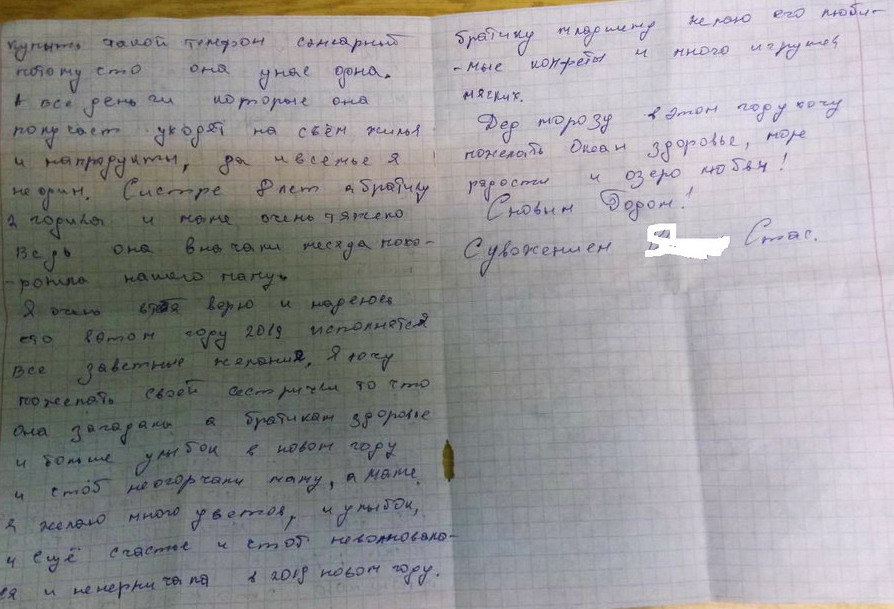 купить такой телефон сенсарный
потому сто она унас одна.
А все деньги которые она
получает уходят на съём жилья
и напродукты, да ивсемье я
неодин. Систре 8 лет абратику
2 годика и маме очень тяжело
Ведь она вначали месяца похо-
-ронила нашего папу.
Я очень верю и надеюсь
сто вэтом году 2019 исполнятся
все заветные желания, Я хочу
пожелать своей сестрички то что
она загадала а братикам здоровье
и больше улыбок в новом году
и стоб неогорчали маму, а маме
я желаю много цветов, и улыбок,
и ещё счастье и стоб неволновала-
ся и ненерничала в 2019 новом году.
братику младшему желаю его люби-
-мые конфеты и много игрушек
мяхких.
Дед морозу вэтом году хочу
пожелать Океан здоровье, море
радости и озеро любви!
Сновым Годом!
Сувожением Стас.